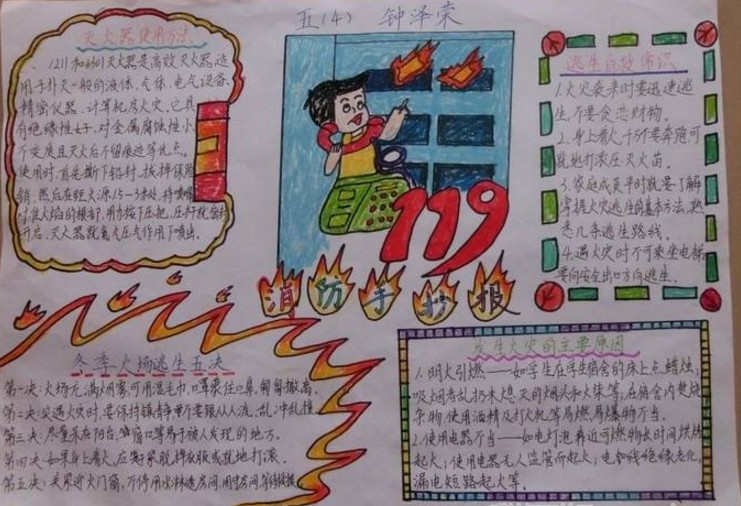 五(4) 钟泽荣
灭火器使用方法
1211和1301灭火器是高效灭火器适
用于扑灭一般的液体、气体、电气设备、
精密仪器、计算机房火灾,它具
有绝缘性好,对金属腐蚀性小,
不变质且灭火后不留痕迹等优点。
使用时,首先撕下铅封,拔掉保险
销,然后在距火源1.5-3米处,将喷嘴
对准火焰的根部,用力按下压把,压杆就
开启,灭火器就靠气压气作用下喷出。
119
消防手抄报
逃生自救常识
1.火灾袭来时要迅速逃
生,不要贪恋财物。
2.身上着火,千万不要奔跑可
就地打滚压灭火苗。
3.家庭成员平时就要了解
掌握火灾逃生的基本方法,熟
悉几条逃生路线。
4.遇火灾时不可乘坐电梯,
要向安全出口方向逃生。
冬季火场逃生五决
第一决:火场充满烟雾,可用湿毛巾、口罩捂住口鼻,匍匐撤离。
第二决:突遇火灾时,要保持镇静,不要随人流,乱冲乱撞。
第三决:尽量呆在阳台、窗口等易于被人发现的地方。
第四决:如果身上着火,应赶紧脱掉衣服或就地打滚。
第五决:关紧迎火门窗,不停用水淋透房间,
发生火灾的主要原因
1.明火引燃——如学生在学生宿舍的床上点蜡烛;
吸烟者乱扔未熄灭的烟头和火柴等;在宿舍内焚烧
杂物;使用酒精及打火机等易燃易爆物不当。
2.使用电器不当——如电灯泡靠近可燃物长时间烘烤
起火;使用电器无人监管而起火;电如线绝缘老化,
漏电短路起火等。